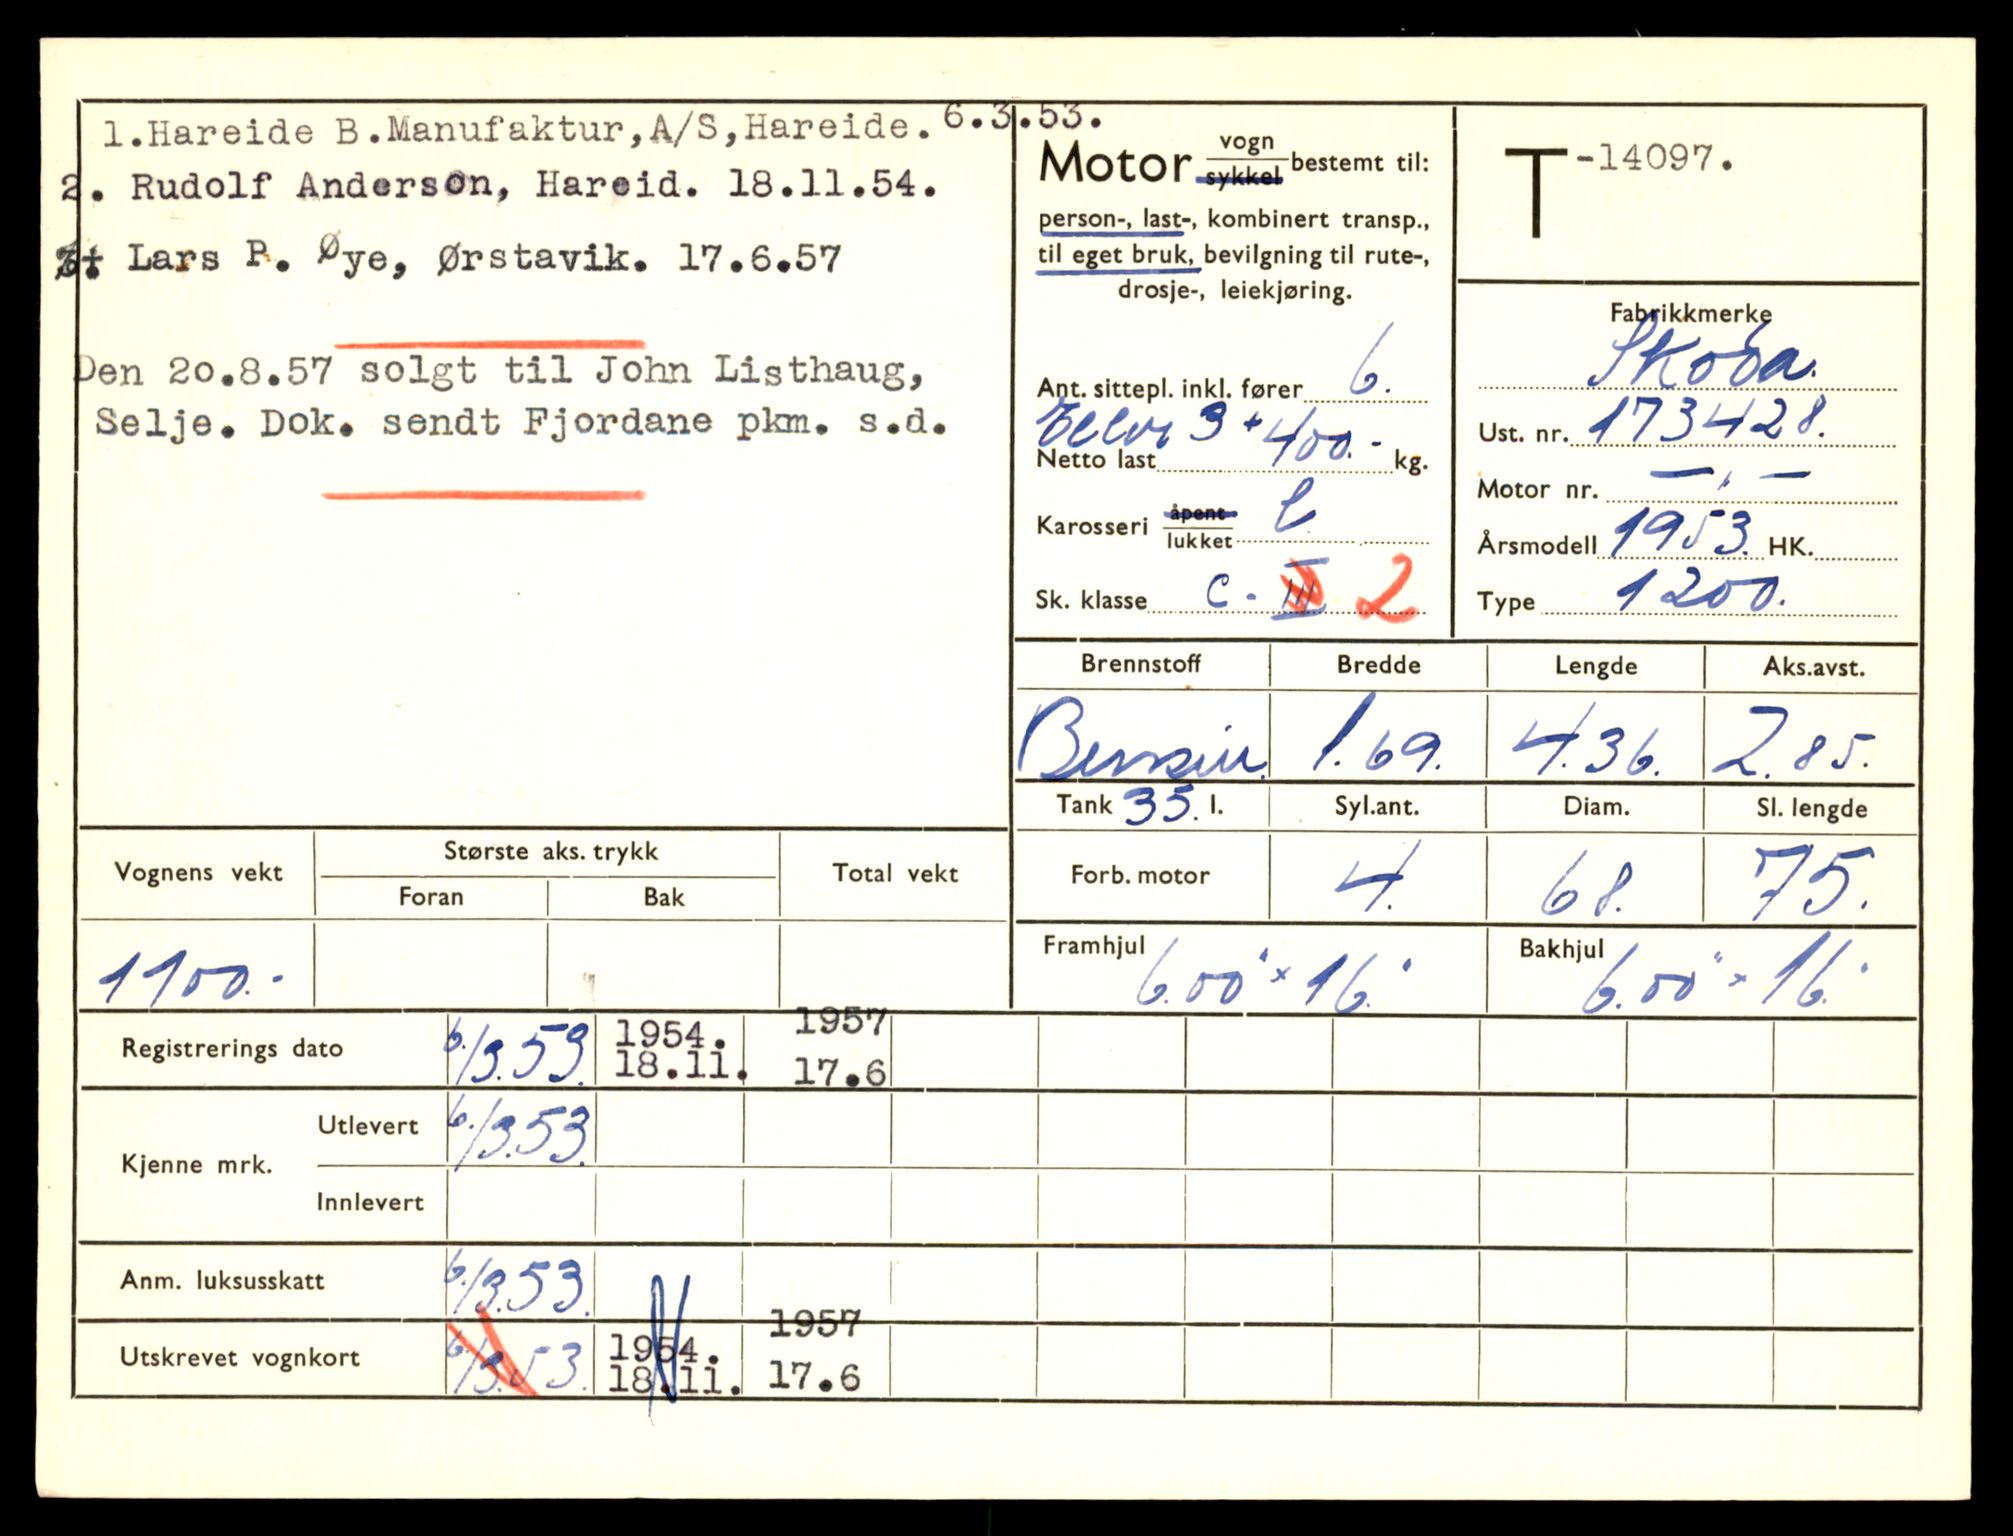 1.Hareide B.Manufaktur,A/S,Hareide. 6.3.53.
2. Rudolf Anderson, Hareid. 18.11.54.
3. Lars P. Øye, Ørstavik. 17.6.57
Den 20.8.57 solgt til John Listhaug,
Selje. Dok. sendt Fjordane pkm. s.d.
Motor vogn sykkel bestemt til:
person-, last-, kombinert transp.,
til eget bruk, bevilgning til rute-,
drosje-, leiekjøring.
Ant. sittepl. inkl. fører 6.
Eller 3 + 400.-
Netto last kg.
Karosseri åpent lukket l
Sk. klasse c. III 2
T-14097.
Fabrikkmerke
Skoda.
Ust. nr. 173428.
Motor nr. — " —
Årsmodell 1953. HK.
Type 1200.
Brennstoff Bredde Lengde Aks.avst.
Bensin. 1.69. 4.36. 2.85.
Tank 35. l. Syl.ant. Diam. Sl. lengde
Forb. motor 4. 68. 75.
Framhjul 6.00" x 16." Bakhjul 6.00" x 16."
Vognens vekt Største aks. trykk Total vekt
Foran Bak
1100.-
Registrerings dato 6./3.53. 1954. 18.11. 1957 17.6
Kjenne mrk. Utlevert 6./3.53.
Innlevert
Anm. luksusskatt 6./3.53.
Utskrevet vognkort 6./3.53. 1954. 18.11. 1957 17.6